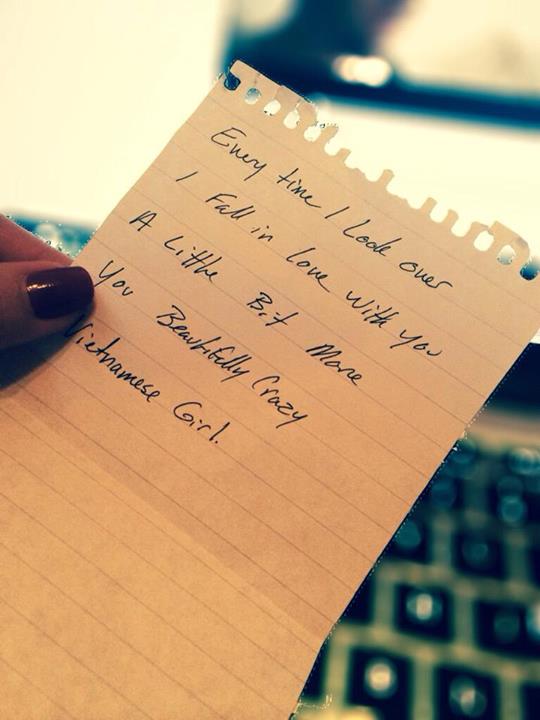 Every time I Look over
I Fall in love with you
A Little Bit More
You Beautifully Crazy
Vietnamese Girl.